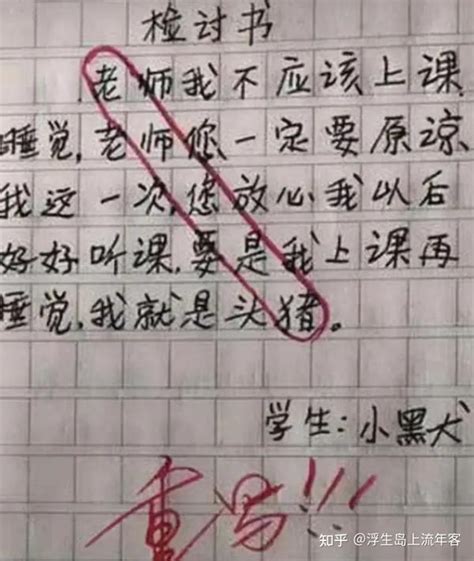 检讨书
老师我不应该上课
睡觉,老师您一定要原谅
我这一次,您放心我以后
好好听课,要是我上课再
睡觉,我就是头猪。
学生:小黑犬
重写!!!
知乎 @浮生岛上流年客